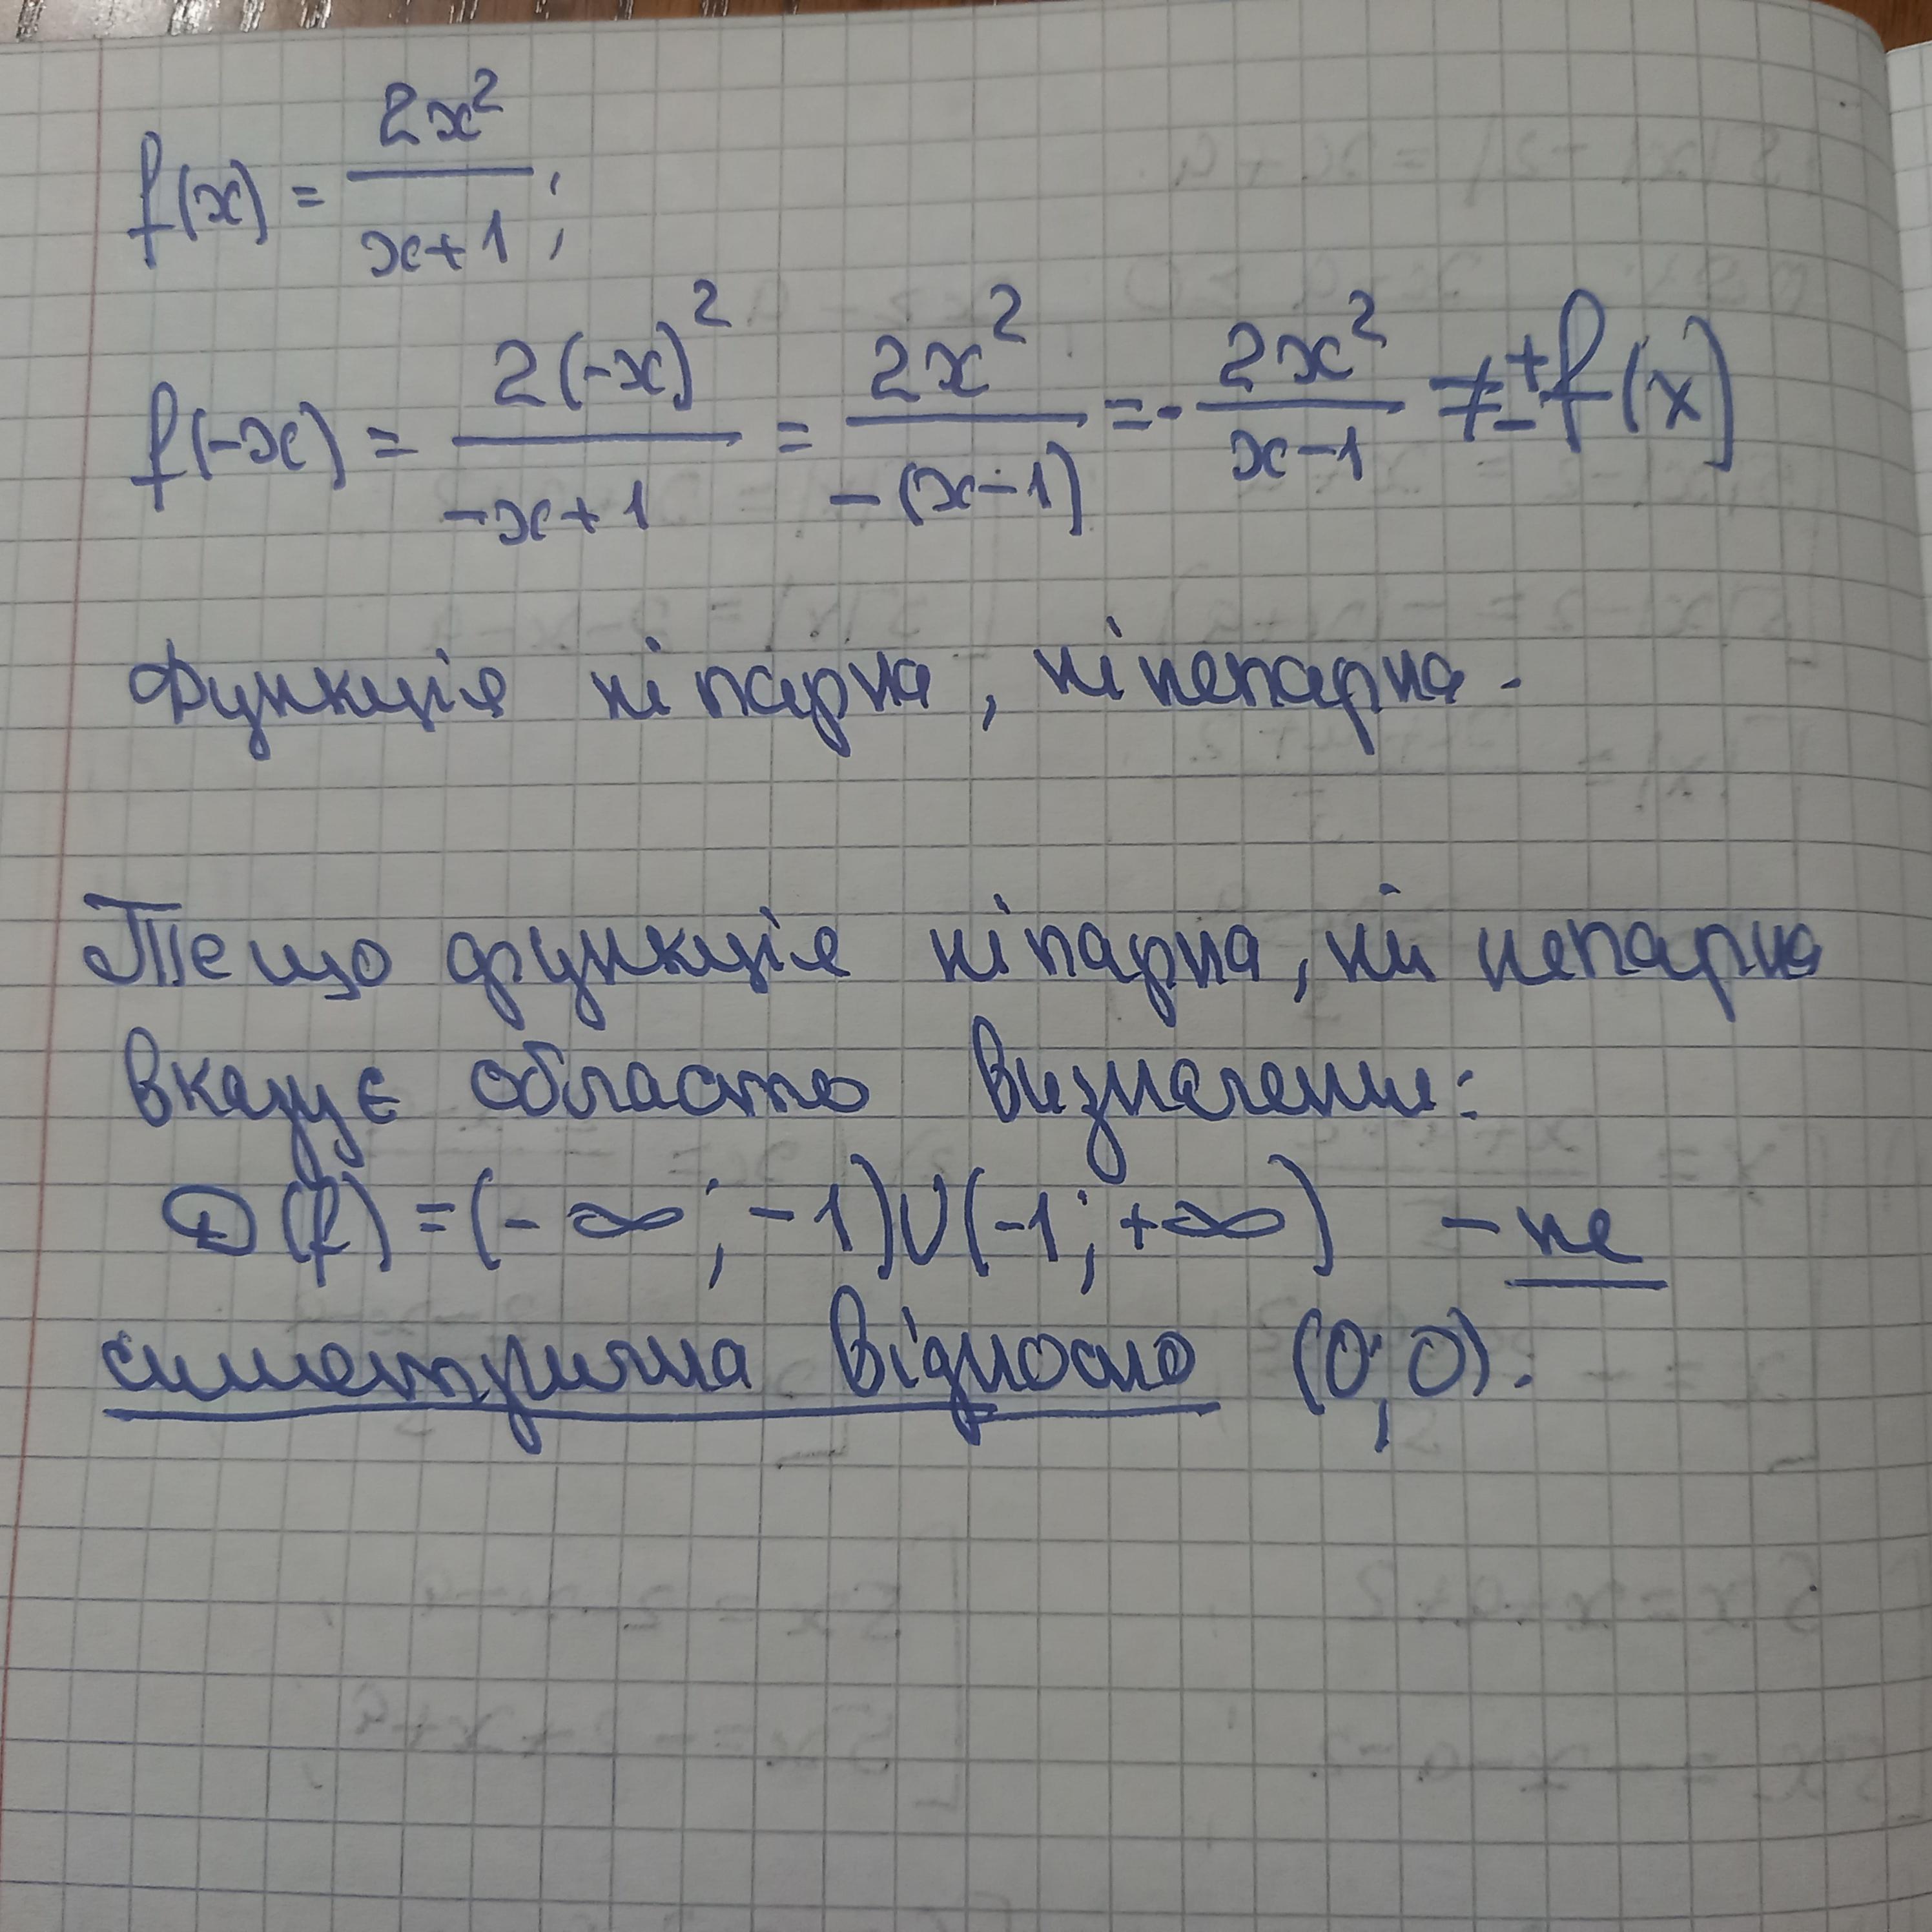 f(x) = 2x² / x+1 ;
f(-x) = 2(-x)² / -x+1 = 2x² / -(x-1) = - 2x² / x-1 ≠ ± f(x)
Функція ні парна, ні непарна.
Те що функція ні парна, ні непарна
вказує область визначення:
D(f) = (-∞; -1)∪(-1; +∞) - не
симетрична відносно (0;0).